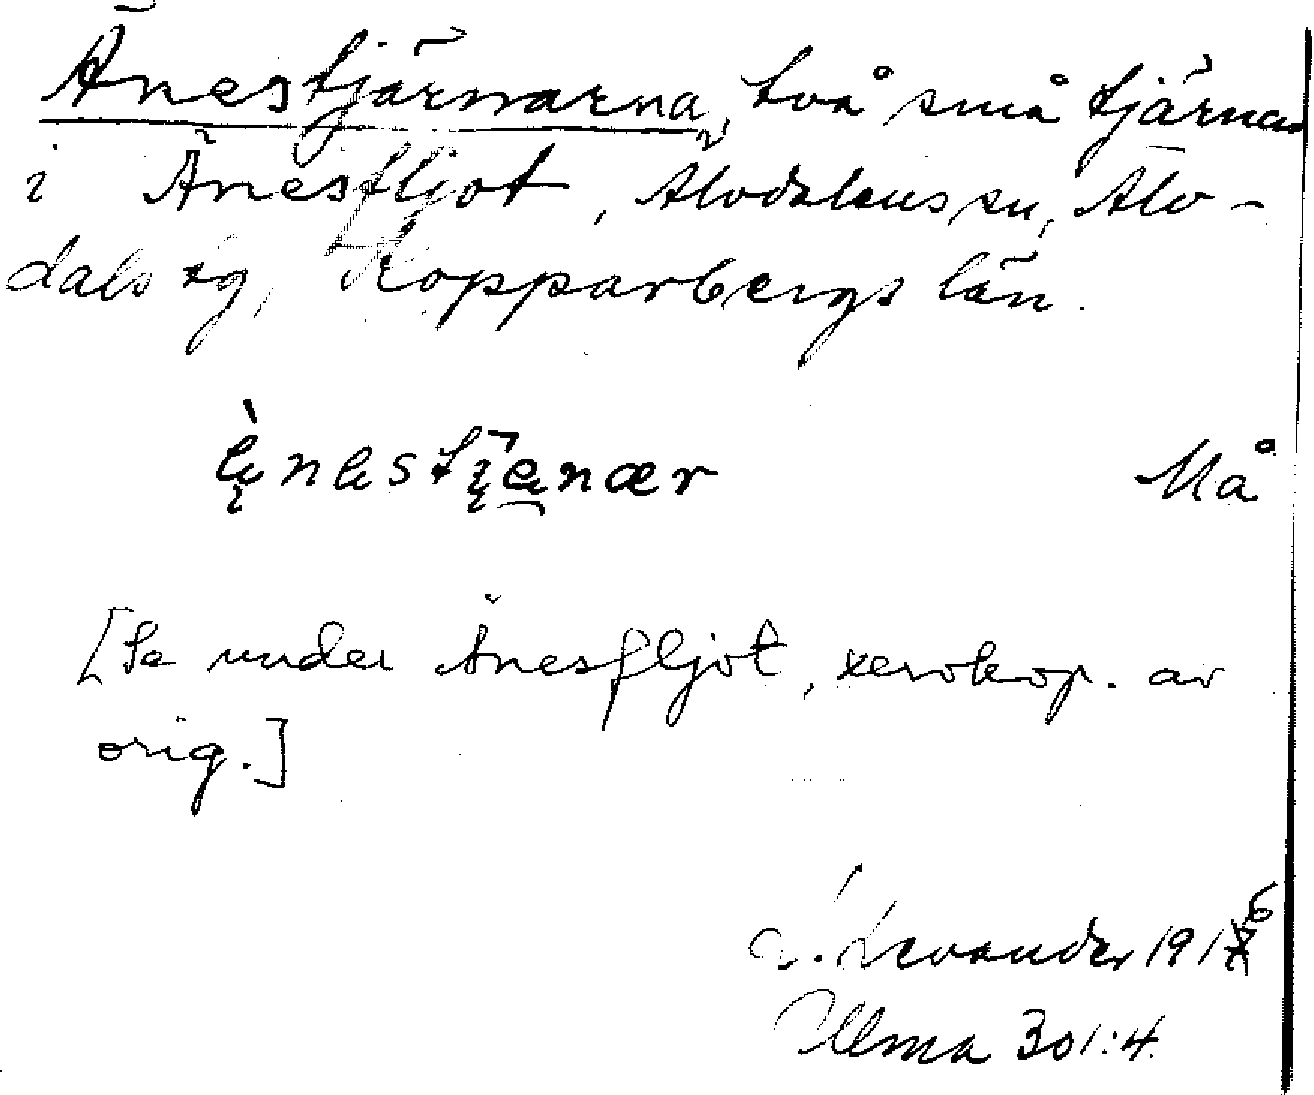 Änestjärnarna, två små tjärnar
i Änesfljot, Älvdalens sn, Älv-
dals tg, Kopparbergs län.
Må
[Se under Änesfljot, xerokop. av
orig.]
L. Levander 1916
Ulma 301:4.